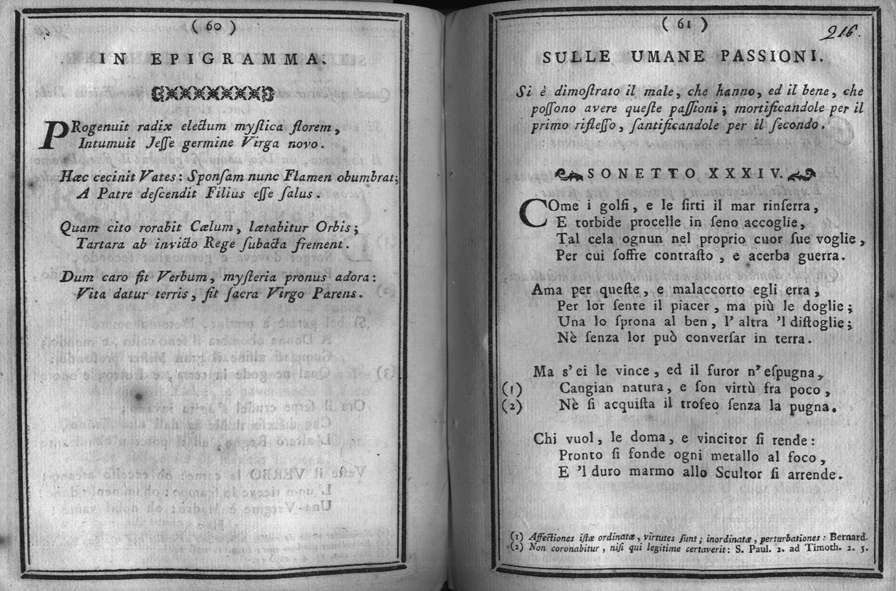 ( 60 )
IN EPIGRAMMA.
PRogenuit radix electum myſtica florem,
Intumuit Jeſſe germine Virga novo.
Hæc cecinit Vates: Sponſam nunc Flamen obumbrat;
A Patre deſcendit Filius eſſe ſalus.
Quam cito rorabit Cælum, lætabitur Orbis;
Tartara ab invicto Rege ſubacta frement.
Dum caro fit Verbum, myſteria pronus adora:
Vita datur terris, fit ſacra Virgo Parens.
( 61 )
216.
SULLE UMANE PASSIONI.
Si è dimoſtrato il male, che hanno, ed il bene, che
poſſono avere queſte paſſioni; mortificandole per il
primo rifleſſo, ſantificandole per il ſecondo.
SONETTO XXXIV.
COme i golfi, e le ſirti il mar rinſerra,
E torbide procelle in ſeno accoglie,
Tal cela ognun nel proprio cuor ſue voglie,
Per cui ſoffre contraſto, e acerba guerra.
Ama per queſte, e malaccorto egli erra,
Per lor ſente il piacer, ma più le doglie;
Una lo ſprona al ben, l' altra 'l diſtoglie;
Nè ſenza lor può converſar in terra.
Ma s' ei le vince, ed il furor n' eſpugna,
(1) Cangian natura, e ſon virtù fra poco,
(2) Nè ſi acquiſta il trofeo ſenza la pugna.
Chi vuol, le doma, e vincitor ſi rende:
Pronto ſi fonde ogni metallo al foco,
E 'l duro marmo allo Scultor ſi arrende.
(1) Affectiones iſtæ ordinatæ, virtutes ſunt; inordinatæ, perturbationes: Bernard.
(2) Non coronabitur, niſi qui legitime certaverit: S. Paul. 2. ad Timoth. 2. 5.